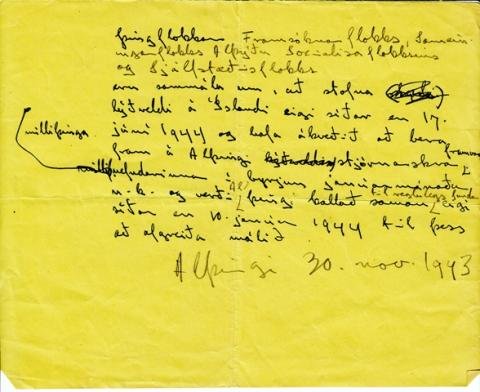 Þingflokkar Framsóknarflokks, Samein-
ingarflokks Alþýðu Socialistaflokksins
og Sjálfstæðisflokks
eru sammála um, að stofna
lýðveldi á Íslandi eigi síðar en 17.
júní 1944 og hafa ákveðið að bera
fram á Alþingi stjórnarskrár
milliþinga
í byrjun janúar mánaðar
n.k. og verði Alþingi kallað saman eigi
síðar en 10. janúar 1944 til þess
að afgreiða málið
Alþingi 30. nov. 1943